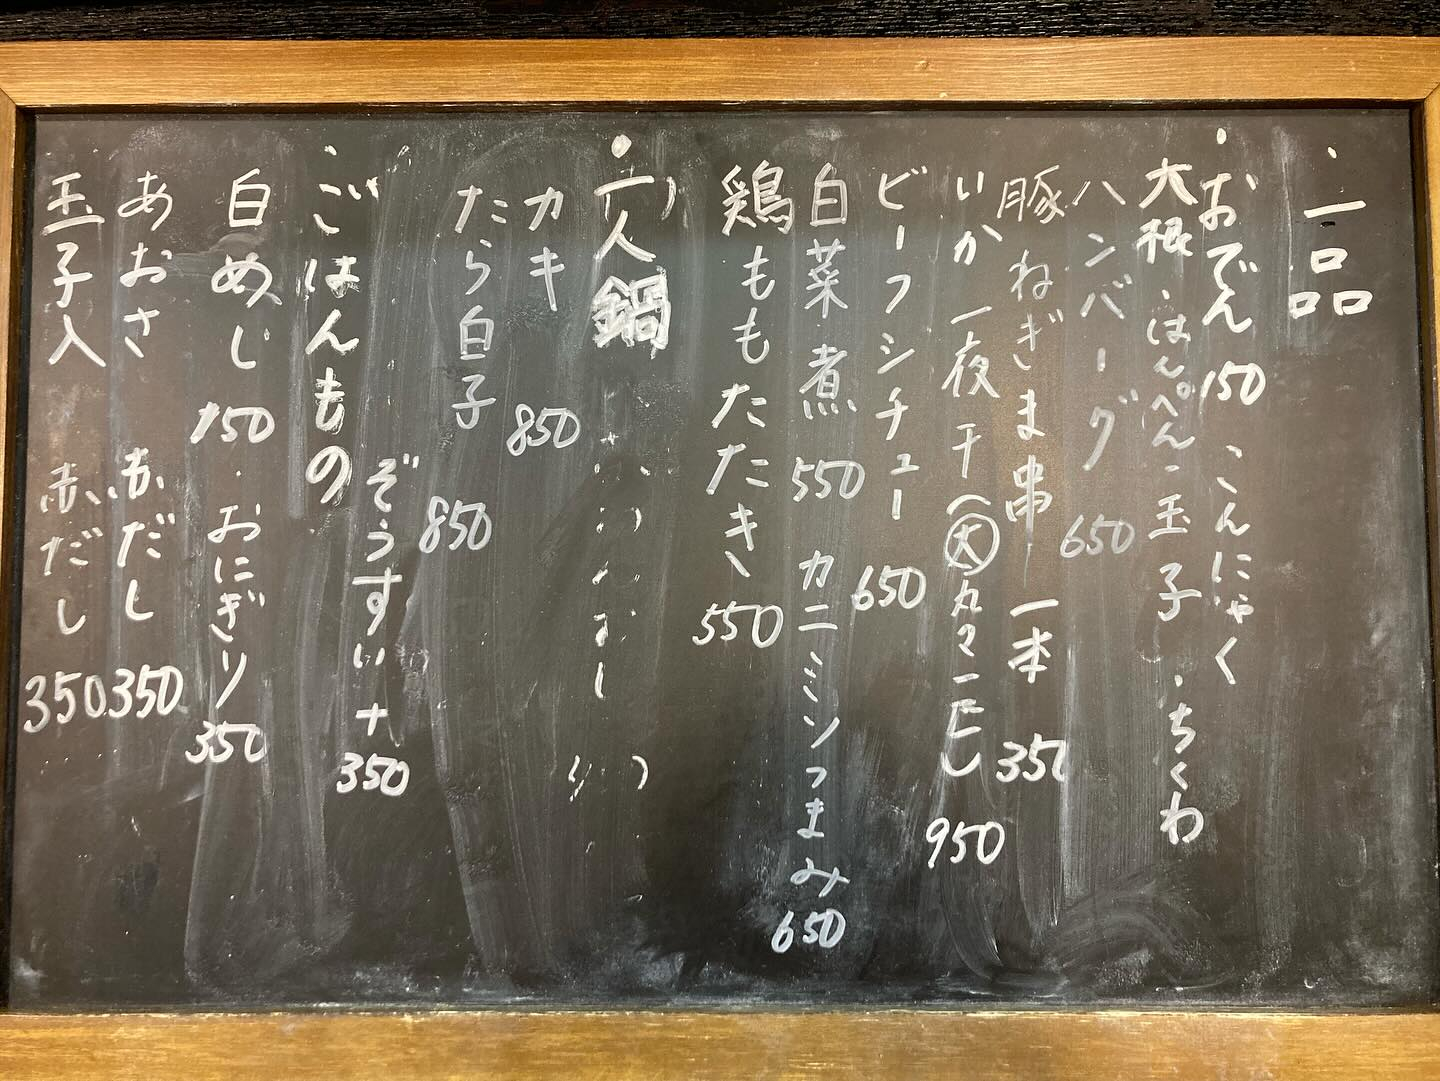 ・一品
・おでん 150 こんにゃく
大根・はんぺん・玉子・ちくわ
ハンバーグ 650
豚ねぎま串 一本 350
いか一夜干(大)丸々一匹 950
ビーフシチュー 650
白菜煮 550 カニミソつまみ 650
鶏ももたたき 550
・一人鍋
カキ 850
たら白子 850
ぞうすい+350
・ごはんもの
白めし 150・おにぎり 350
あおさ 赤だし 350
玉子入 赤だし 350